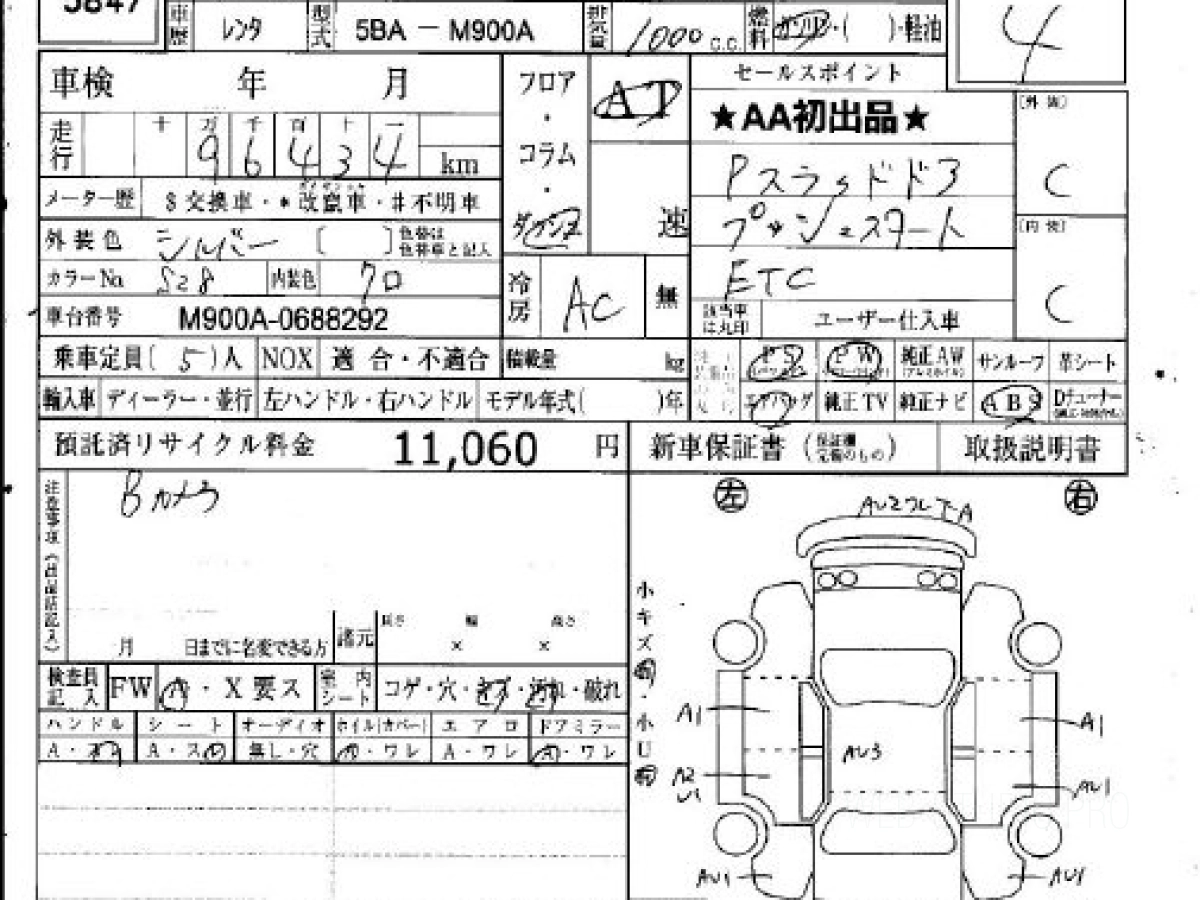 5847
車歴 レンタ 型式 5BA - M900A 排気量 1000 C.C. 燃料 ガソリン・( )・軽油 4
車検 年 月
フロア・コラム・ダッシュ
AT
速
セールスポイント
★AA初出品★
Pスライドドア
プッシュスタート
ETC
[外装]
C
[内装]
C
走行 十 万 千 百 十 一
9 6 4 3 4 km
メーター歴 $交換車・*改竄車・#不明車
外装色 シルバー [ ] 色替は色替車と記入
カラーNo S28 内装色 クロ
冷房 AC 無
該当車は丸印 ユーザー仕入車
車台番号 M900A-0688292
乗車定員( 5 )人 NOX 適合・不適合 積載量 kg
PS PW 純正AW サンルーフ 革シート
輸入車 ディーラー・並行 左ハンドル・右ハンドル モデル年式( )年
エアバッグ 純正TV 純正ナビ ABS Dチューナー
預託済リサイクル料金 11,060 円 新車保証書 (保証欄完備のもの) 取扱説明書
注意事項(出品店記入)
Bカメラ
月 日までに名変できる方 諸元 長さ × 幅 × 高さ
検査員記入 FW A・X要ス 室内シート コゲ・穴・キズ・汚れ・破れ
ハンドル シート オーディオ ホイル(カバー) エアロ ドアミラー
A・ A・ス 無し・穴 A・ワレ A・ワレ A・ワレ
左 右
小キズ有・小U有
AU2ワレ下A
A1 A1
AU3
A2 U1 AU1
AU1 AU1